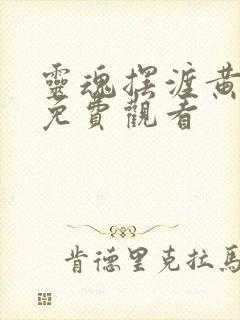 靈魂擺渡黃
免費觀看
肯德里克拉馬